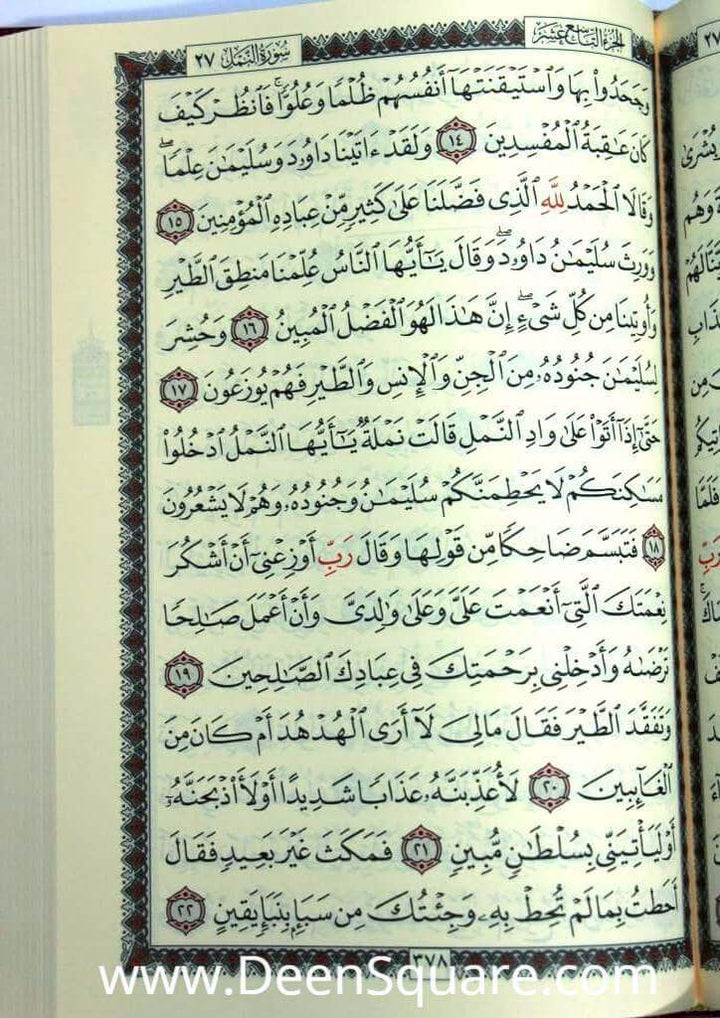 الجزء التاسع عشر
سورة النمل ٢٧
وَجَحَدُوا۟ بِهَا وَٱسْتَيْقَنَتْهَآ أَنفُسُهُمْ ظُلْمًا وَعُلُوًّا ۚ فَٱنظُرْ كَيْفَ
كَانَ عَـٰقِبَةُ ٱلْمُفْسِدِينَ ١٤ وَلَقَدْ ءَاتَيْنَا دَاوُۥدَ وَسُلَيْمَـٰنَ عِلْمًا ۖ
وَقَالَا ٱلْحَمْدُ لِلَّهِ ٱلَّذِى فَضَّلَنَا عَلَىٰ كَثِيرٍ مِّنْ عِبَادِهِ ٱلْمُؤْمِنِينَ ١٥
وَوَرِثَ سُلَيْمَـٰنُ دَاوُۥدَ ۖ وَقَالَ يَـٰٓأَيُّهَا ٱلنَّاسُ عُلِّمْنَا مَنطِقَ ٱلطَّيْرِ
وَأُوتِينَا مِن كُلِّ شَىْءٍ ۖ إِنَّ هَـٰذَا لَهُوَ ٱلْفَضْلُ ٱلْمُبِينُ ١٦ وَحُشِرَ
لِسُلَيْمَـٰنَ جُنُودُهُۥ مِنَ ٱلْجِنِّ وَٱلْإِنسِ وَٱلطَّيْرِ فَهُمْ يُوزَعُونَ ١٧
حَتَّىٰٓ إِذَآ أَتَوْا۟ عَلَىٰ وَادِ ٱلنَّمْلِ قَالَتْ نَمْلَةٌ يَـٰٓأَيُّهَا ٱلنَّمْلُ ٱدْخُلُوا۟
مَسَـٰكِنَكُمْ لَا يَحْطِمَنَّكُمْ سُلَيْمَـٰنُ وَجُنُودُهُۥ وَهُمْ لَا يَشْعُرُونَ
١٨ فَتَبَسَّمَ ضَاحِكًا مِّن قَوْلِهَا وَقَالَ رَبِّ أَوْزِعْنِىٓ أَنْ أَشْكُرَ
نِعْمَتَكَ ٱلَّتِىٓ أَنْعَمْتَ عَلَىَّ وَعَلَىٰ وَٰلِدَىَّ وَأَنْ أَعْمَلَ صَـٰلِحًا
تَرْضَىٰهُ وَأَدْخِلْنِى بِرَحْمَتِكَ فِى عِبَادِكَ ٱلصَّـٰلِحِينَ ١٩
وَتَفَقَّدَ ٱلطَّيْرَ فَقَالَ مَا لِىَ لَآ أَرَى ٱلْهُدْهُدَ أَمْ كَانَ مِنَ
ٱلْغَآئِبِينَ ٢٠ لَأُعَذِّبَنَّهُۥ عَذَابًا شَدِيدًا أَوْ لَأَا۟ذْبَحَنَّهُۥٓ
أَوْ لَيَأْتِيَنِّى بِسُلْطَـٰنٍ مُّبِينٍ ٢١ فَمَكَثَ غَيْرَ بَعِيدٍ فَقَالَ
أَحَطتُ بِمَا لَمْ تُحِطْ بِهِۦ وَجِئْتُكَ مِن سَبَإٍۭ بِنَبَإٍ يَقِينٍ ٢٢
٣٧٨
www.DeenSquare.com